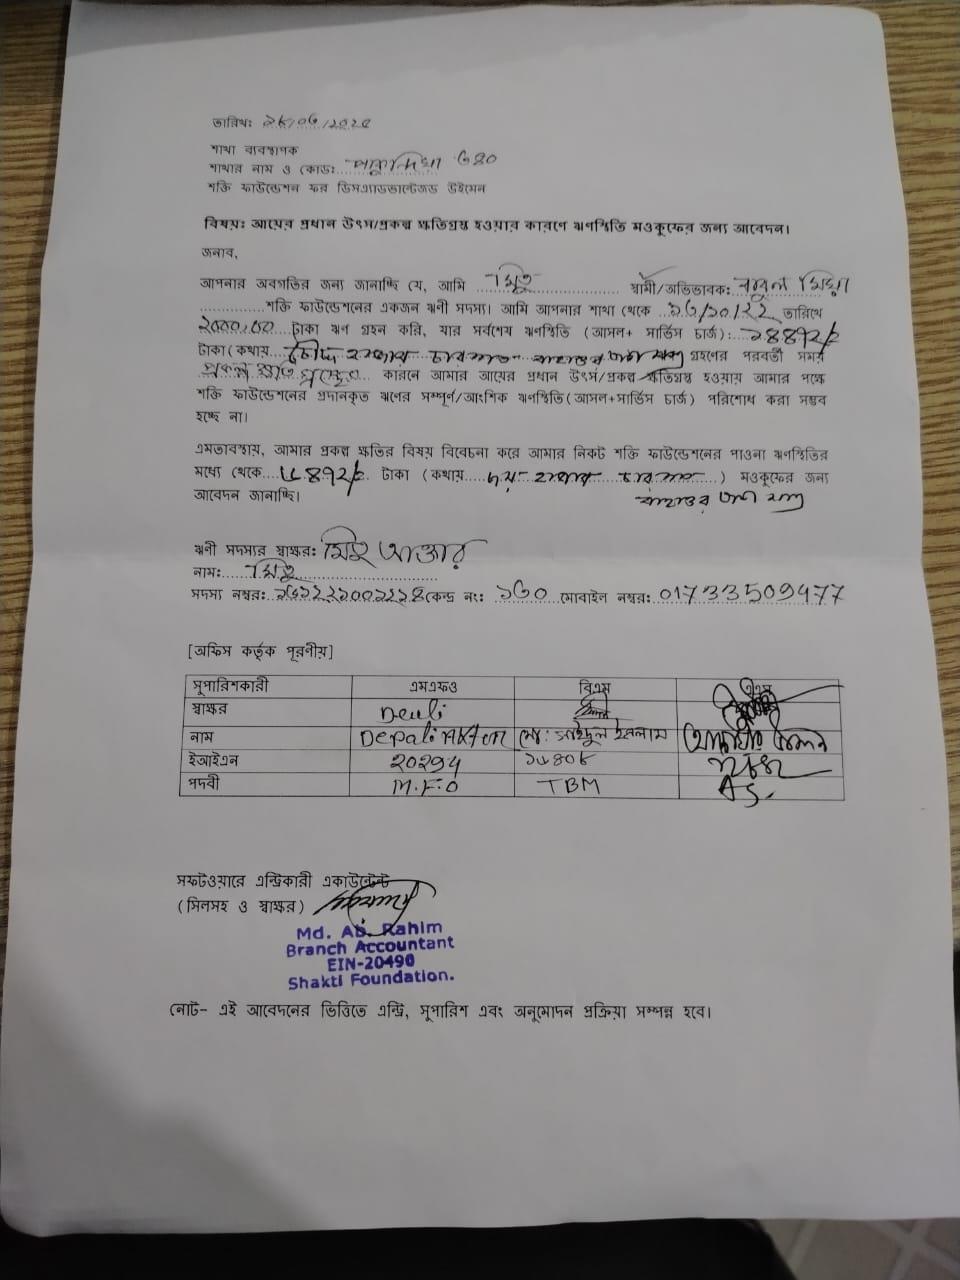 তারিখঃ
শাখা ব্যবস্থাপক
শাখার নাম ও কোডঃ
শক্তি ফাউন্ডেশন ফর ডিসএ্যাডভান্টেজড উইমেন
বিষয়ঃ আয়ের প্রধান উৎস/প্রকল্প ক্ষতিগ্রস্ত হওয়ার কারণে ঋণস্থিতি মওকুফের জন্য আবেদন।
জনাব,
আপনার অবগতির জন্য জানাচ্ছি যে, আমি মিতু স্বামী/অভিভাবক: মিয়া
শক্তি ফাউন্ডেশনের একজন ঋণী সদস্য। আমি আপনার শাখা থেকে তারিখে
টাকা ঋণ গ্রহন করি, যার সর্বশেষ ঋণস্থিতি (আসল+ সার্ভিস চার্জ): ১৪৪৭২/=
টাকা(কথায় চৌদ্দ হাজার চারশত বাহাত্তর টাকা মাত্র গ্রহণের পরবর্তী সময়
কারনে আমার আয়ের প্রধান উৎস/প্রকল্প ক্ষতিগ্রস্ত হওয়ায় আমার পক্ষে
শক্তি ফাউন্ডেশনের প্রদানকৃত ঋণের সম্পূর্ণ/আংশিক ঋণস্থিতি(আসল+সার্ভিস চার্জ) পরিশোধ করা সম্ভব
হচ্ছে না।
এমতাবস্থায়, আমার প্রকল্প ক্ষতির বিষয় বিবেচনা করে আমার নিকট শক্তি ফাউন্ডেশনের পাওনা ঋণস্থিতির
মধ্যে থেকে টাকা (কথায় হাজার চারশত ) মওকুফের জন্য
আবেদন জানাচ্ছি। বাহাত্তর টাকা মাত্র
ঋণী সদস্যর স্বাক্ষরঃ মিতু আক্তার
নামঃ মিতু
সদস্য নম্বরঃ কেন্দ্র নং: ১৬০ মোবাইল নম্বরঃ 01733509477
[অফিস কর্তৃক পূরণীয়]
সুপারিশকারী এমএফও বিএম
স্বাক্ষর
নাম Depali Akter মো: সাইদুল ইসলাম
ইআইএন 20294
পদবী M.F.O TBM AS.
সফটওয়ারে এন্ট্রিকারী একাউন্টেন্ট
(সিলসহ ও স্বাক্ষর)
Md. Ab. Rahim
Branch Accountant
EIN-20490
Shakti Foundation.
নোট- এই আবেদনের ভিত্তিতে এন্ট্রি, সুপারিশ এবং অনুমোদন প্রক্রিয়া সম্পন্ন হবে।